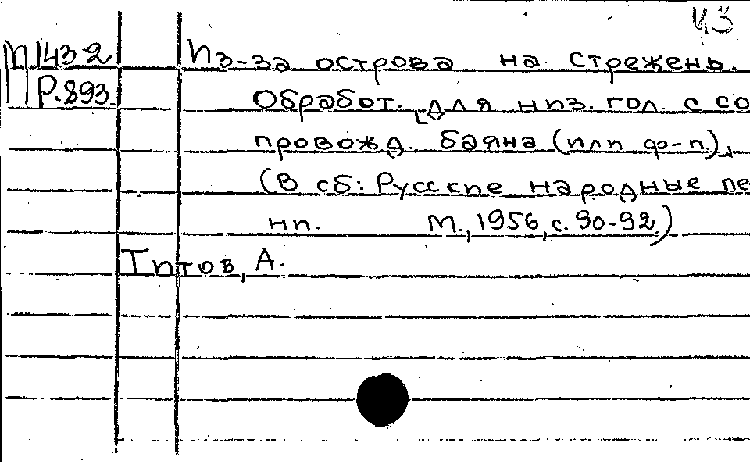 ИЗ
М 1432
Из-за острова на стрежень.
Р.893
Обработ. [для низ. гол. с со
провожд. баяна (или ф-п.),
(В сб: Русские народные пе
ни. М., 1956, с. 90-92)
Титов, А.